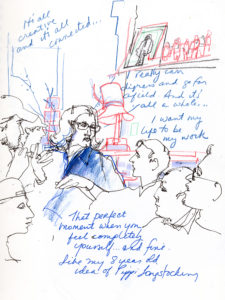 It's all
creative
and it's all
connected...
I really can
digress and go far
afield. And it's
all a whole...
I want my
life to be
my work
That perfect
moment when you
feel completely
yourself... and fine.
Like my 8 year old
idea of Pippi Longstocking